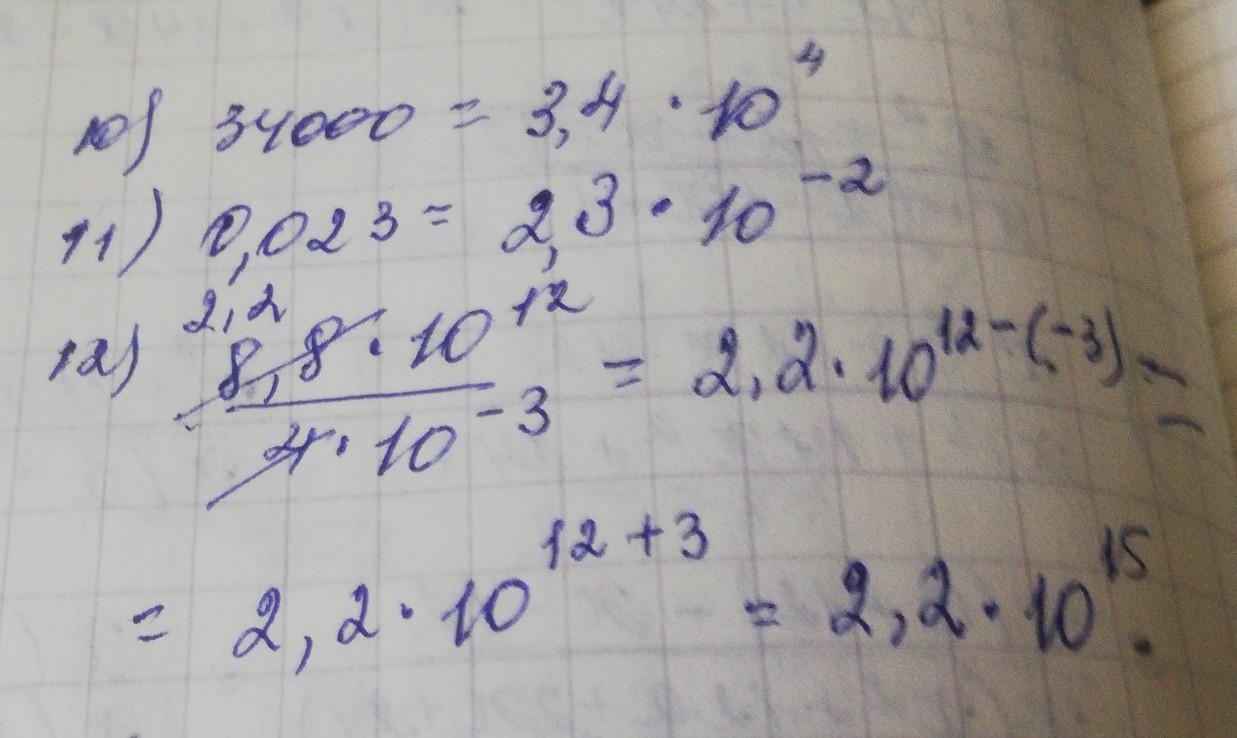 10) 34000 = 3,4 · 10⁴
11) 0,023 = 2,3 · 10⁻²
2,2
12) 8,8 · 10¹² / 4 · 10⁻³ = 2,2 · 10¹²⁻⁽⁻³⁾ =
= 2,2 · 10¹²⁺³ = 2,2 · 10¹⁵.